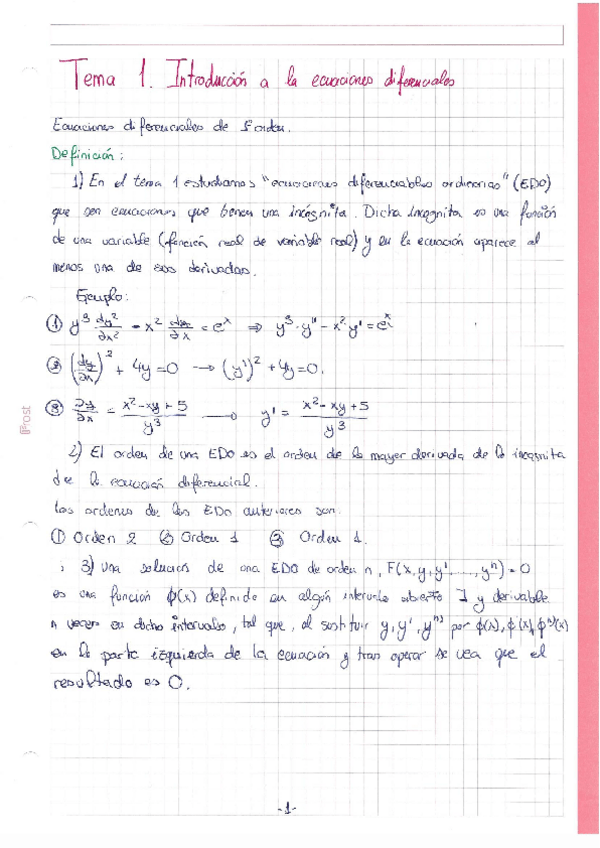 Tema 1. Introducción a la ecuaciones diferenciales
Ecuaciones diferenciales de 1 orden.
Definición:
1) En el tema 1 estudiamos "ecuaciones diferenciables ordinarias" (EDO)
que son ecuaciones que tienen una incógnita. Dicha incognita es una función
de una variable (función real de variable real) y en la ecuación aparece al
menos una de sus derivadas.
Ejemplo:
① y³ dy²/∂x² - x² dy/∂x = eˣ ⇒ y³·y'' - x²·y' = eˣ
② (dy/∂x)² + 4y = 0 → (y')² + 4y = 0.
③ ∂y/∂x = (x² - xy + 5)/y³ → y' = (x² - xy + 5)/y³
2) El orden de una EDO es el orden de la mayer derivada de la incognita
de la ecuación diferencial.
Los ordenes de las EDO anteriores son:
① Orden 2 ② Orden 1 ③ Orden 1.
3) Una solucion de una EDO de orden n, F(x, y, y', ..., yⁿ) = 0
es una función ϕ(x) definida en algún intervalo abierto I y derivable
n veces en dicho intervalo, tal que, al sustituir y, y', yⁿ⁾ por ϕ(x), ϕ'(x), ϕⁿ⁾(x)
en la parte izquierda de la ecuación y tras operar se vea que el
resultado es 0.
-1-
Prost